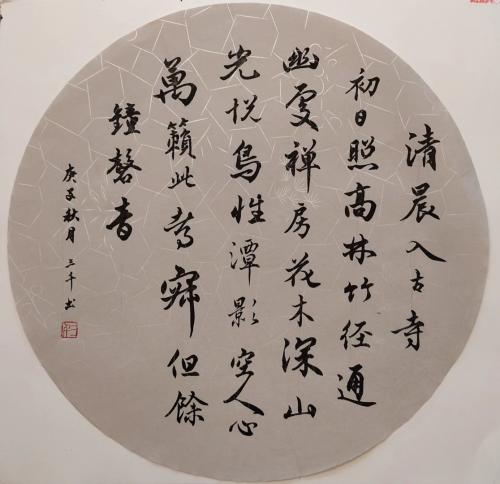 清晨入古寺
初日照高林竹径通
幽处禅房花木深山
光悦鸟性潭影空人心
萬籟此寂但餘
鐘磬音
庚子秋月 三千书